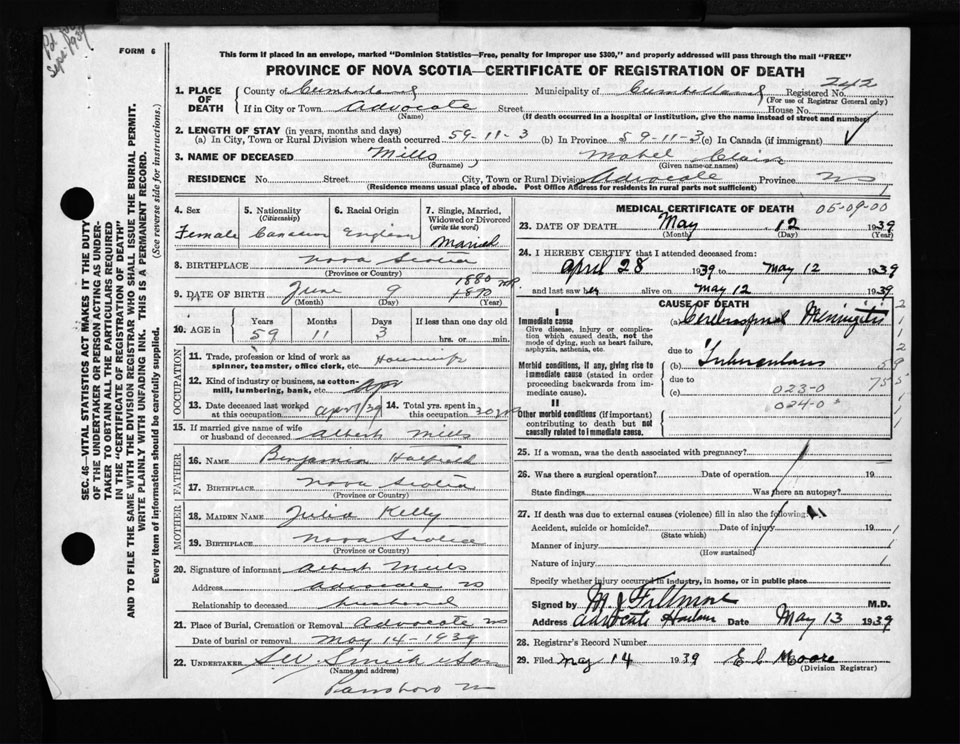 Pd.
Sept. 1939
FORM 6
This form if placed in an envelope, marked "Dominion Statistics—Free, penalty for improper use $300," and properly addressed will pass through the mail "FREE"
PROVINCE OF NOVA SCOTIA—CERTIFICATE OF REGISTRATION OF DEATH
SEC. 46—VITAL STATISTICS ACT MAKES IT THE DUTY
OF THE UNDERTAKER OR PERSON ACTING AS UNDER-
TAKER TO OBTAIN ALL THE PARTICULARS REQUIRED
IN THE "CERTIFICATE OF REGISTRATION OF DEATH"
AND TO FILE THE SAME WITH THE DIVISION REGISTRAR WHO SHALL ISSUE THE BURIAL PERMIT.
WRITE PLAINLY WITH UNFADING INK. THIS IS A PERMANENT RECORD.
Every item of information should be carefully supplied. (See reverse side for instructions.)
1. PLACE OF DEATH County of Cumberland Municipality of Cumberland Registered No. 242
(For use of Registrar General only)
If in City or Town Advocate Street House No.
(Name) (If death occurred in a hospital or institution, give the name instead of street and number)
2. LENGTH OF STAY (in years, months and days)
(a) In City, Town or Rural Division where death occurred 59-11-3 (b) In Province 59-11-3 (c) In Canada (if immigrant)
3. NAME OF DECEASED Mills Mabel
(Surname) (Given name or names)
RESIDENCE No. Street City, Town or Rural Division Advocate Province NS
(Residence means usual place of abode. Post Office Address for residents in rural parts not sufficient)
4. Sex Female
5. Nationality (Citizenship) Canadian
6. Racial Origin English
7. Single, Married, Widowed or Divorced (write the word) Married
8. BIRTHPLACE Nova Scotia
(Province or Country)
1880
9. DATE OF BIRTH June 9 1870
(Month) (Day) (Year)
10. AGE in Years 59 Months 11 Days 3 If less than one day old hrs. or min.
OCCUPATION
11. Trade, profession or kind of work as spinner, teamster, office clerk, etc. Housewife
12. Kind of industry or business, as cotton-mill, lumbering, bank, etc.
13. Date deceased last worked at this occupation April/39 14. Total yrs. spent in this occupation 30 yrs
15. If married give name of wife or husband of deceased Albert Mills
FATHER
16. NAME Benjamin Hatfield
17. BIRTHPLACE Nova Scotia
(Province or Country)
MOTHER
18. MAIDEN NAME Julia Kelly
19. BIRTHPLACE Nova Scotia
(Province or Country)
20. Signature of informant Albert Mills
Address Advocate NS
Relationship to deceased husband
21. Place of Burial, Cremation or Removal Advocate NS
Date of burial or removal May 14-1939
22. UNDERTAKER S W Smith & Son
(Name and address)
Parrsboro N
MEDICAL CERTIFICATE OF DEATH 05-09-00
23. DATE OF DEATH May 12 1939
(Month) (Day) (Year)
24. I HEREBY CERTIFY that I attended deceased from:
April 28 1939 to May 12 1939
and last saw her alive on May 12 1939
CAUSE OF DEATH
I
Immediate cause (a) Cerebrospinal Meningitis
Give disease, injury or complication which caused death, not the mode of dying, such as heart failure, asphyxia, asthenia, etc.
due to
Morbid conditions, if any, giving rise to immediate cause (stated in order proceeding backwards from immediate cause). (b) Tuberculous
due to
(c) 023-0
024-0
II
Other morbid conditions (if important) contributing to death but not causally related to immediate cause.
25. If a woman, was the death associated with pregnancy?
26. Was there a surgical operation? Date of operation 19
State findings Was there an autopsy?
27. If death was due to external causes (violence) fill in also the following:
Accident, suicide or homicide? Date of injury 19
(State which)
Manner of injury
(How sustained)
Nature of injury
Specify whether injury occurred in industry, in home, or in public place
Signed by M. J. Fillmore M.D.
Address Advocate Harbour Date May 13 1939
28. Registrar's Record Number
29. Filed May 14 1939 E C Moore
(Division Registrar)